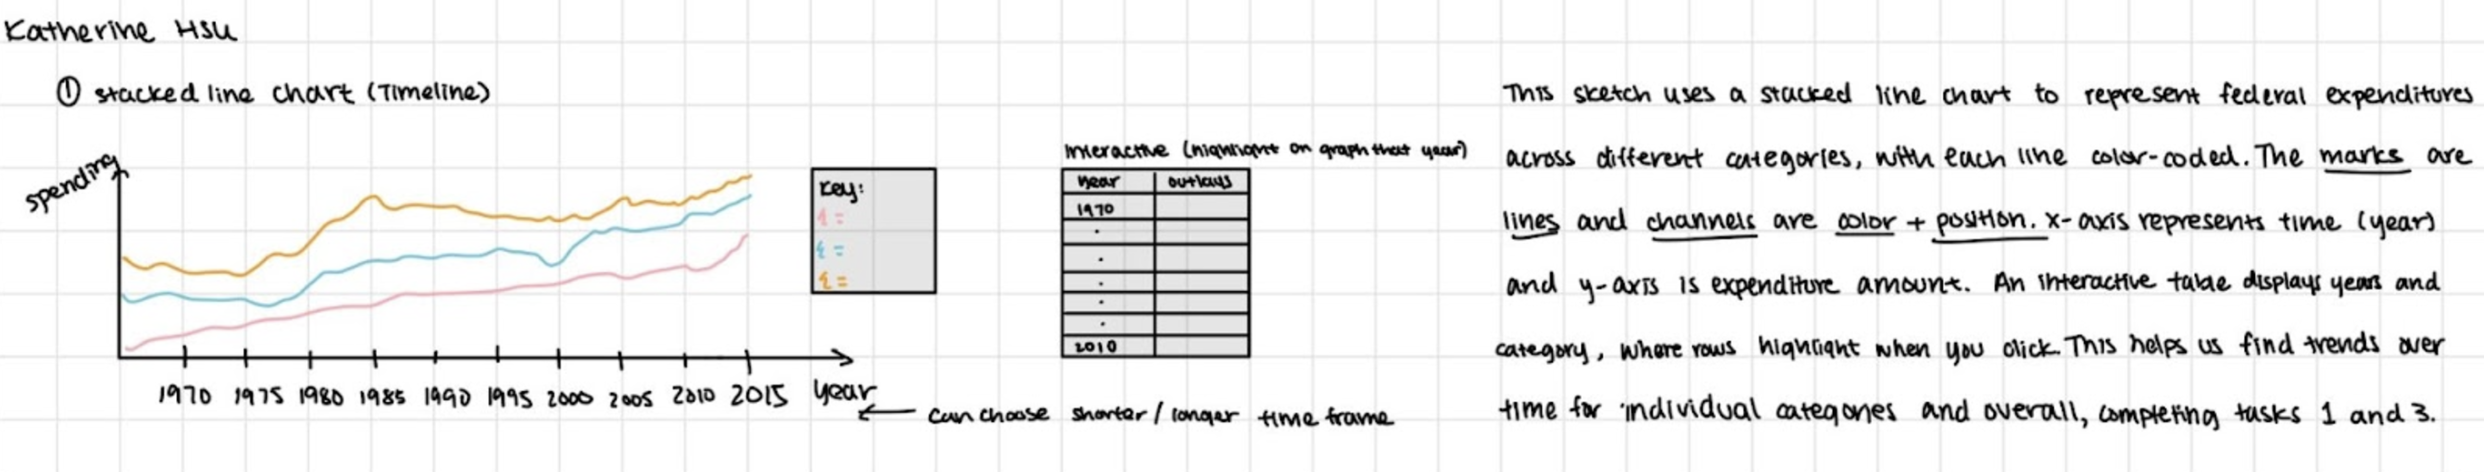 Katherine Hsu
① stacked line chart (Timeline)
spending
1970 1975 1980 1985 1990 1995 2000 2005 2010 2015 year
← can choose shorter / longer time frame
Key:
{ =
{ =
{ =
Interactive (highlight on graph that year)
year outlays
1970
.
.
.
.
.
2010
This sketch uses a stacked line chart to represent federal expenditures
across different categories, with each line color-coded. The marks are
lines and channels are color + position. x-axis represents time (year)
and y-axis is expenditure amount. An interactive table displays years and
category, where rows highlight when you click. This helps us find trends over
time for individual categories and overall, completing tasks 1 and 3.